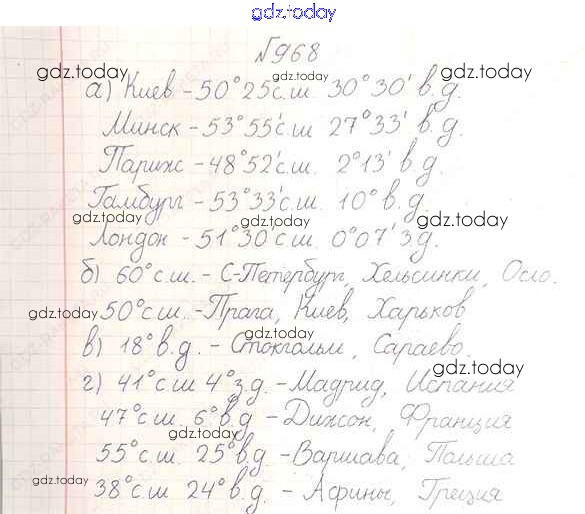 gdz.today
№968
gdz.today gdz.today
а) Киев - 50°25' с.ш. 30°30' в.д.
Минск - 53°55' с.ш. 27°33' в.д.
gdz.today
Париж - 48°52' с.ш. 2°13' в.д.
Гамбург - 53°33' с.ш. 10° в.д.
gdz.today gdz.today gdz.today
Лондон - 51°30' с.ш. 0°07' з.д.
б) 60° с.ш. - С-Петербург, Хельсинки, Осло.
gdz.today gdz.today
50° с.ш. - Прага, Киев, Харьков
gdz.today
в) 18° в.д. - Стокгольм, Сараево.
gdz.today gdz.today
г) 41° с.ш. 4° з.д. - Мадрид, Испания
47° с.ш. 6° в.д. - Дижон, Франция
gdz.today
55° с.ш. 25° в.д. - Варшава, Польша
gdz.today gdz.today
38° с.ш. 24° в.д. - Афины, Греция